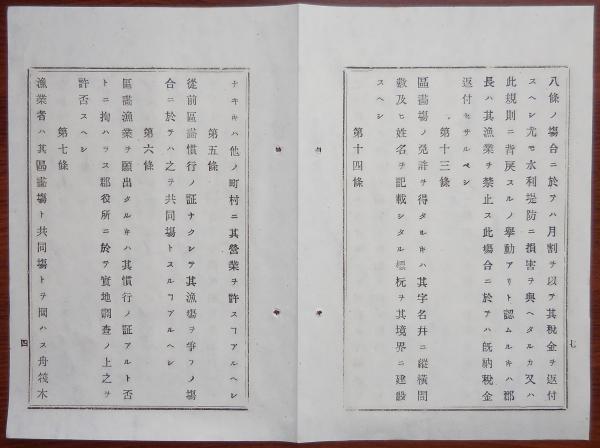 八條ノ塲合ニ於テハ月割ヲ以テ其税金ヲ返付
スヘシ尤モ水利堤防ニ損害ヲ與ヘタルカ又ハ
此規則ニ背戻スルノ擧動アリト認ムルキハ郡
長ハ其漁業ヲ禁止ス此塲合ニ於テハ既納税金
返付セサルベシ
第十三條
區畵塲ノ免許ヲ得タルキハ其字名幷ニ縱横間
數及ヒ姓名ヲ記載シタル標杭ヲ其境界ニ建設
スヘシ
第十四條
七
ナキキハ他ノ町村ニ其營業ヲ許スヿアルヘシ
第五條
從前區畵慣行ノ証ナクシテ其漁塲ヲ爭フノ塲
合ニ於テハ之ヲ共同塲トスルヿアルヘシ
第六條
區畵漁業ヲ願出タルキハ其慣行ノ証アルト否
トニ拘ハラス郡役所ニ於テ實地調査ノ上之ヲ
許否スヘシ
第七條
漁業者ハ其區畵塲ト共同塲トヲ問ハス舟筏木
四